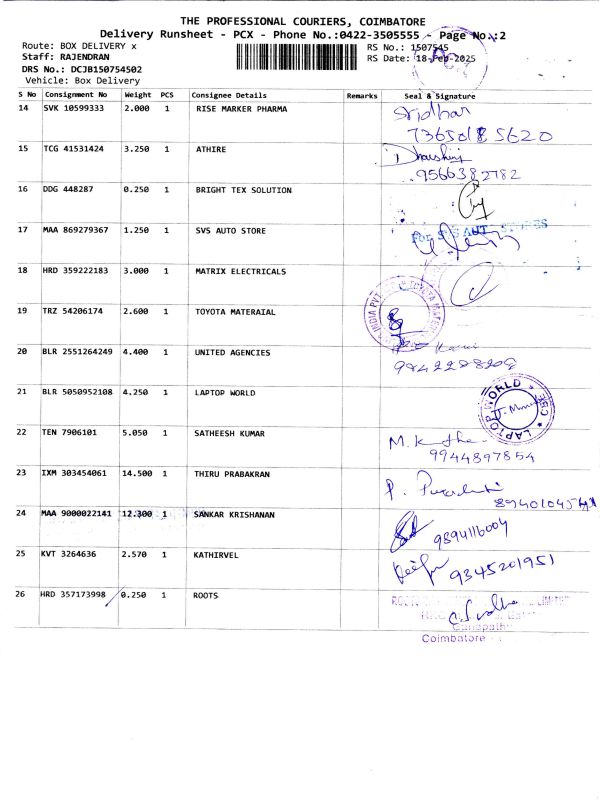 THE PROFESSIONAL COURIERS, COIMBATORE
Delivery Runsheet - PCX - Phone No.:0422-3505555 - Page No.:2
Route: BOX DELIVERY x
RS No.: 1507545
Staff: RAJENDRAN
RS Date: 18-Feb-2025
DRS No.: DCJB150754502
Vehicle: Box Delivery
S No Consignment No Weight PCS Consignee Details Remarks Seal & Signature
14 SVK 10599333 2.000 1 RISE MARKER PHARMA Sridhar
7365018 5620
15 TCG 41531424 3.250 1 ATHIRE
9566382782
16 DDG 448287 0.250 1 BRIGHT TEX SOLUTION
17 MAA 869279367 1.250 1 SVS AUTO STORE
18 HRD 359222183 3.000 1 MATRIX ELECTRICALS
19 TRZ 54206174 2.600 1 TOYOTA MATERAIAL
INDIA PVT
20 BLR 2551264249 4.400 1 UNITED AGENCIES
21 BLR 5050952108 4.250 1 LAPTOP WORLD
LAPTOP WORLD * CBE *
22 TEN 7906101 5.050 1 SATHEESH KUMAR
9944897854
23 IXM 303454061 14.500 1 THIRU PRABAKRAN
24 MAA 9000022141 12.300 1 SANKAR KRISHANAN
9894116004
25 KVT 3264636 2.570 1 KATHIRVEL
9345201951
26 HRD 357173998 0.250 1 ROOTS
LIMITED
Ganapathy
Coimbatore